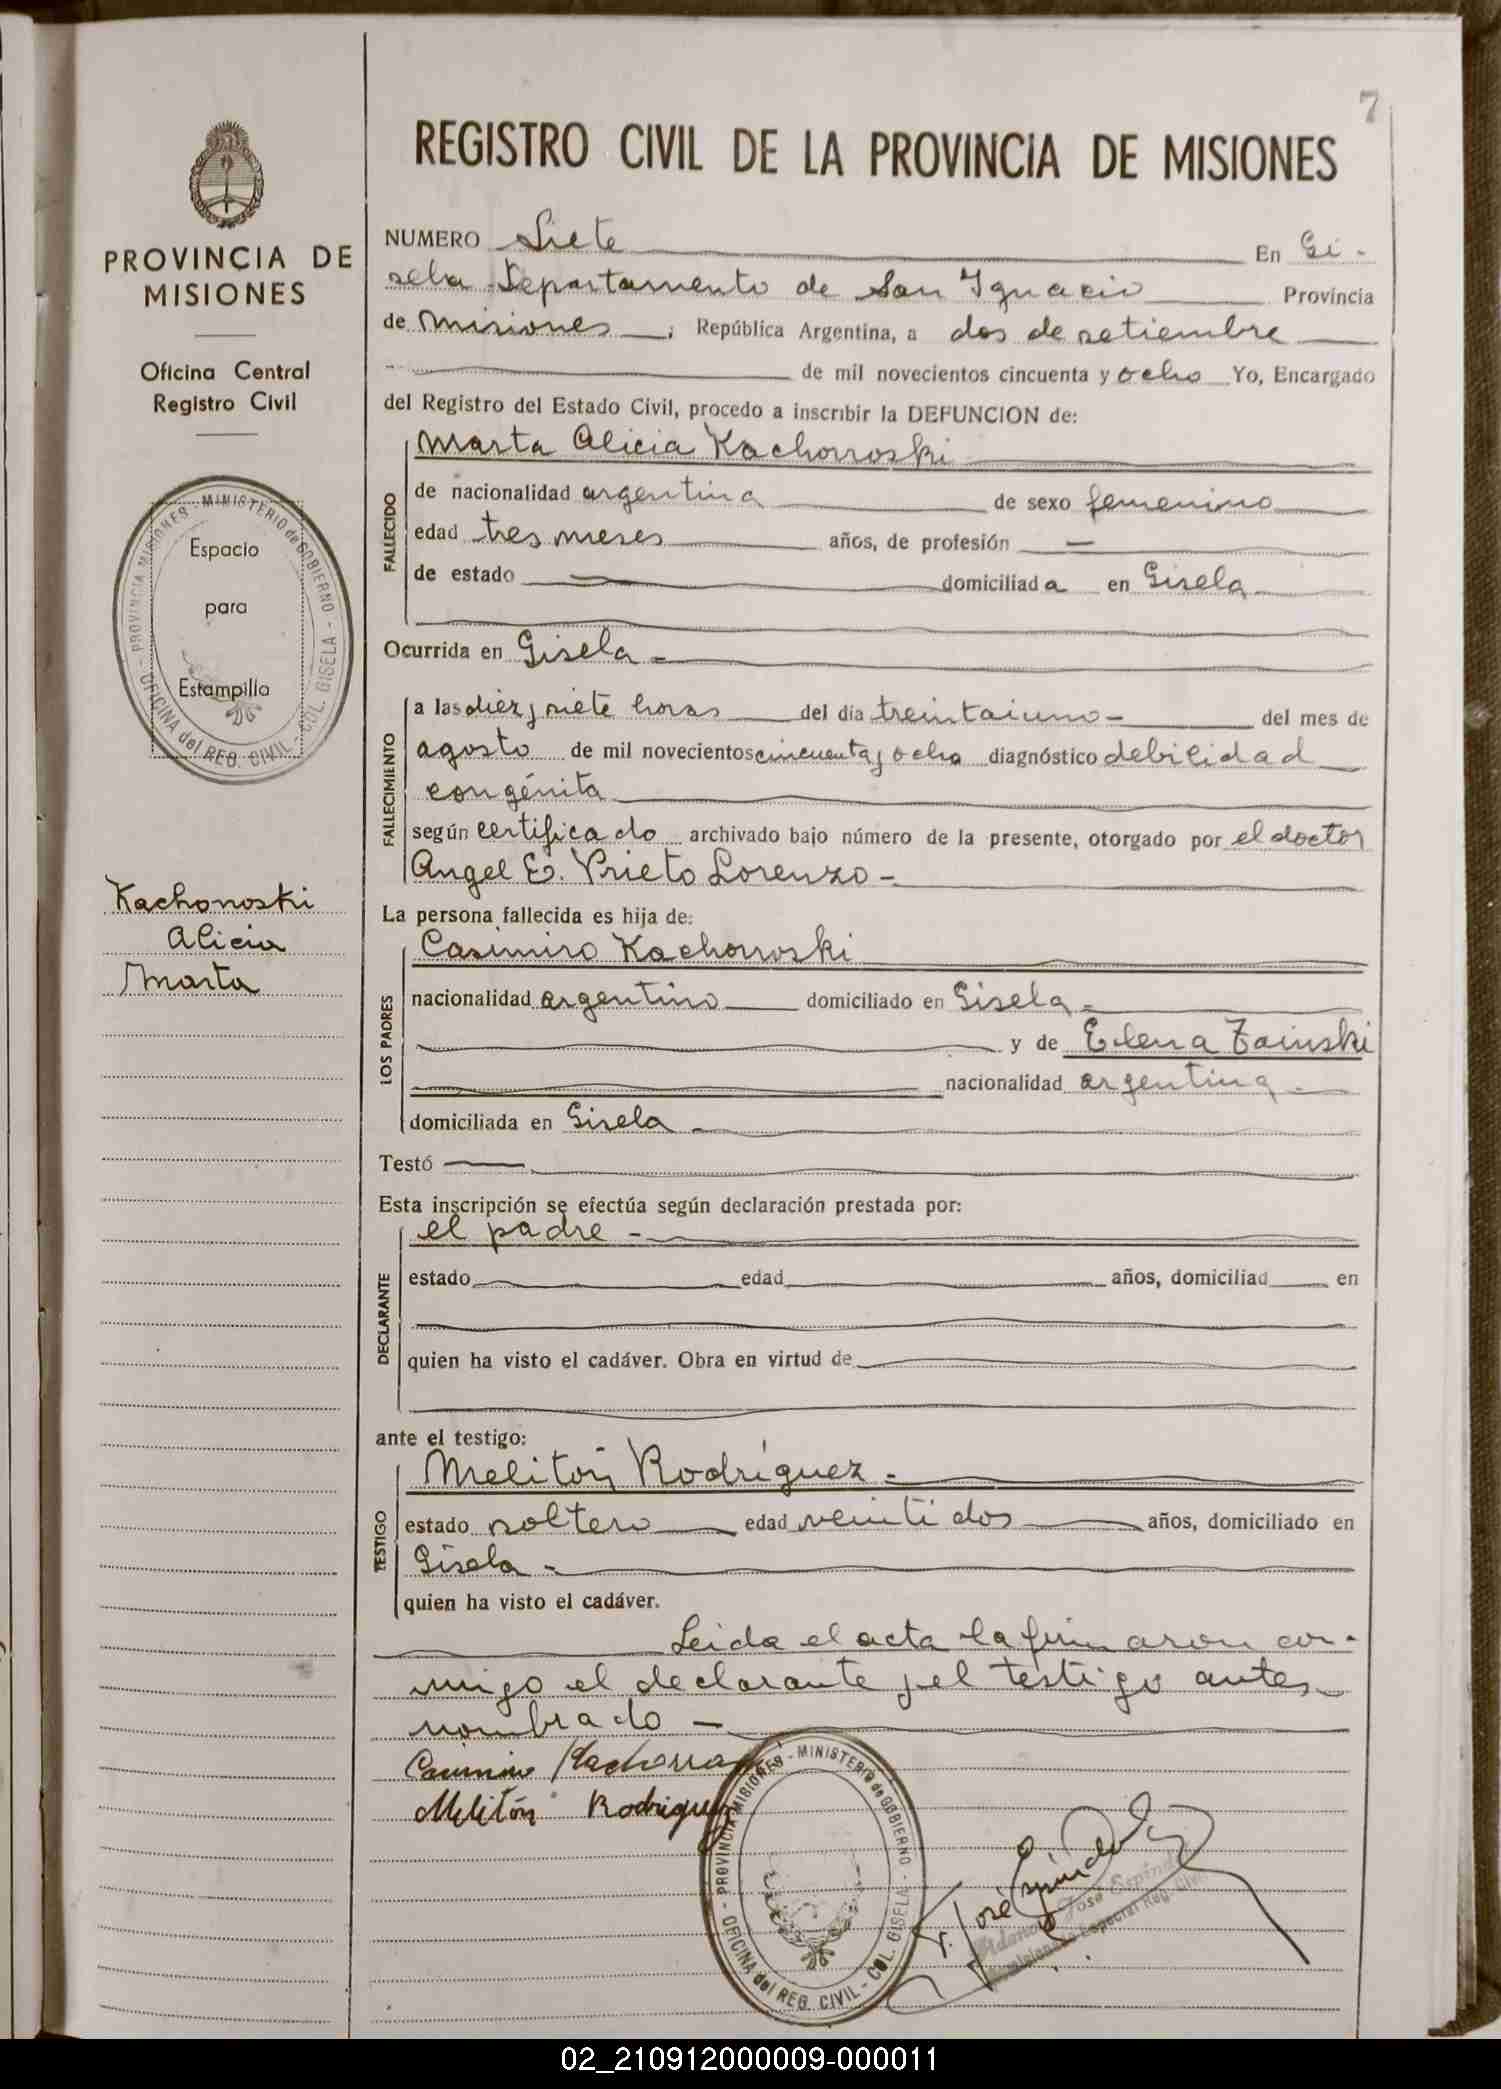 7
REGISTRO CIVIL DE LA PROVINCIA DE MISIONES
PROVINCIA DE
MISIONES
Oficina Central
Registro Civil
PROVINCIA MISIONES - MINISTERIO de GOBIERNO - OFICINA del REG. CIVIL - COL. GISELA -
Espacio
para
Estampilla
Kachonoski
Alicia
Marta
NUMERO Siete En Gi-
sela Departamento de San Ignacio Provincia
de Misiones ; República Argentina, a dos de setiembre
de mil novecientos cincuenta y ocho Yo, Encargado
del Registro del Estado Civil, procedo a inscribir la DEFUNCION de:
Marta Alicia Kachorroski
FALLECIDO
de nacionalidad argentina de sexo femenino
edad tres meses años, de profesión —
de estado — domiciliada en Gisela
Ocurrida en Gisela -
FALLECIMIENTO
a las diez y siete horas del día treintaiuno - del mes de
agosto de mil novecientos cincuenta y ocho diagnóstico debilidad
congénita
según certificado archivado bajo número de la presente, otorgado por el doctor
Angel E. Prieto Lorenzo -
La persona fallecida es hija de:
LOS PADRES
Casimiro Kachorroski
nacionalidad argentino domiciliado en Gisela -
y de Elena Zainski
nacionalidad argentina -
domiciliada en Gisela -
Testó —
Esta inscripción se efectúa según declaración prestada por:
DECLARANTE
el padre -
estado edad años, domiciliad en
quien ha visto el cadáver. Obra en virtud de
ante el testigo:
TESTIGO
Melitón Rodríguez -
estado soltero edad veintidos años, domiciliado en
Gisela -
quien ha visto el cadáver.
Leida el acta la firmaron con-
migo el declarante y el testigo antes
nombrado -
Casimiro
Melitón Rodriguez
PROVINCIA MISIONES - MINISTERIO de GOBIERNO - OFICINA del REG. CIVIL - COL. GISELA -
José
02_210912000009-000011